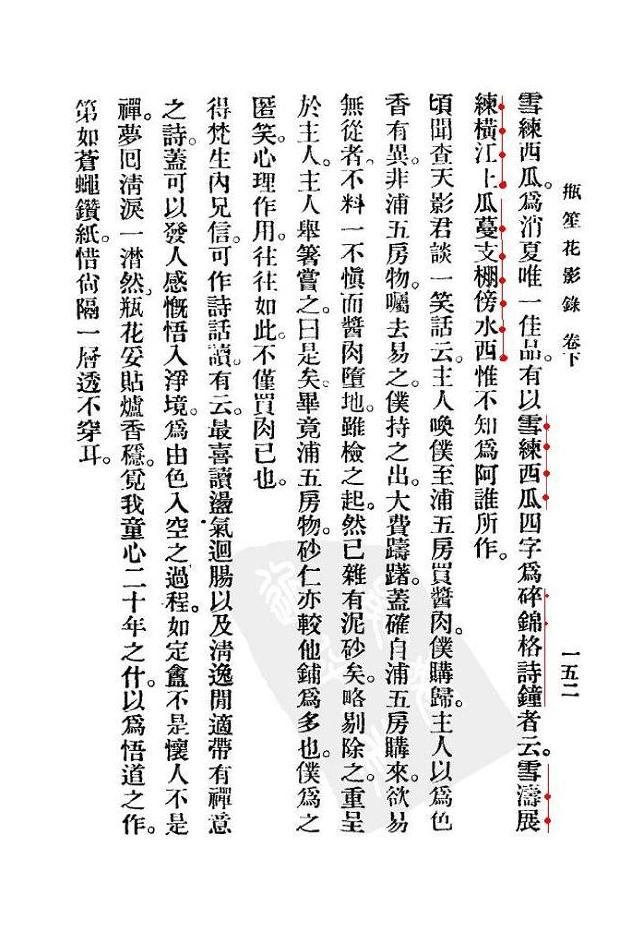 瓶笙花影錄 卷下
一五二
雪練西瓜。爲消夏唯一佳品。有以雪練西瓜四字爲碎錦格詩鐘者云。雪濤展
練橫江上瓜蔓支棚傍水西惟不知爲阿誰所作。
頃聞查天影君談一笑話云。主人喚僕至浦五房買醬肉。僕購歸。主人以爲色
香有異。非浦五房物。囑去易之。僕持之出。大費躊躇。蓋確自浦五房購來。欲易
無從者。不料一不愼而醬肉墮地。雖檢之起。然已雜有泥砂矣。略剔除之。重呈
於主人。主人舉箸嘗之。曰是矣。畢竟浦五房物。砂仁亦較他鋪爲多也。僕爲之
匿笑。心理作用。往往如此。不僅買肉已也。
得梵生內兄信。可作詩話讀。有云。最喜讀盪氣迴腸以及淸逸閒適帶有禪意
之詩。蓋可以發人感慨悟入淨境。爲由色入空之過程。如定盦不是懷人不是
禪。夢回淸淚一潸然。瓶花妥貼爐香穩。覓我童心二十年之什。以爲悟道之作。
第如蒼蠅鑽紙。惜尙隔一層透不穿耳。